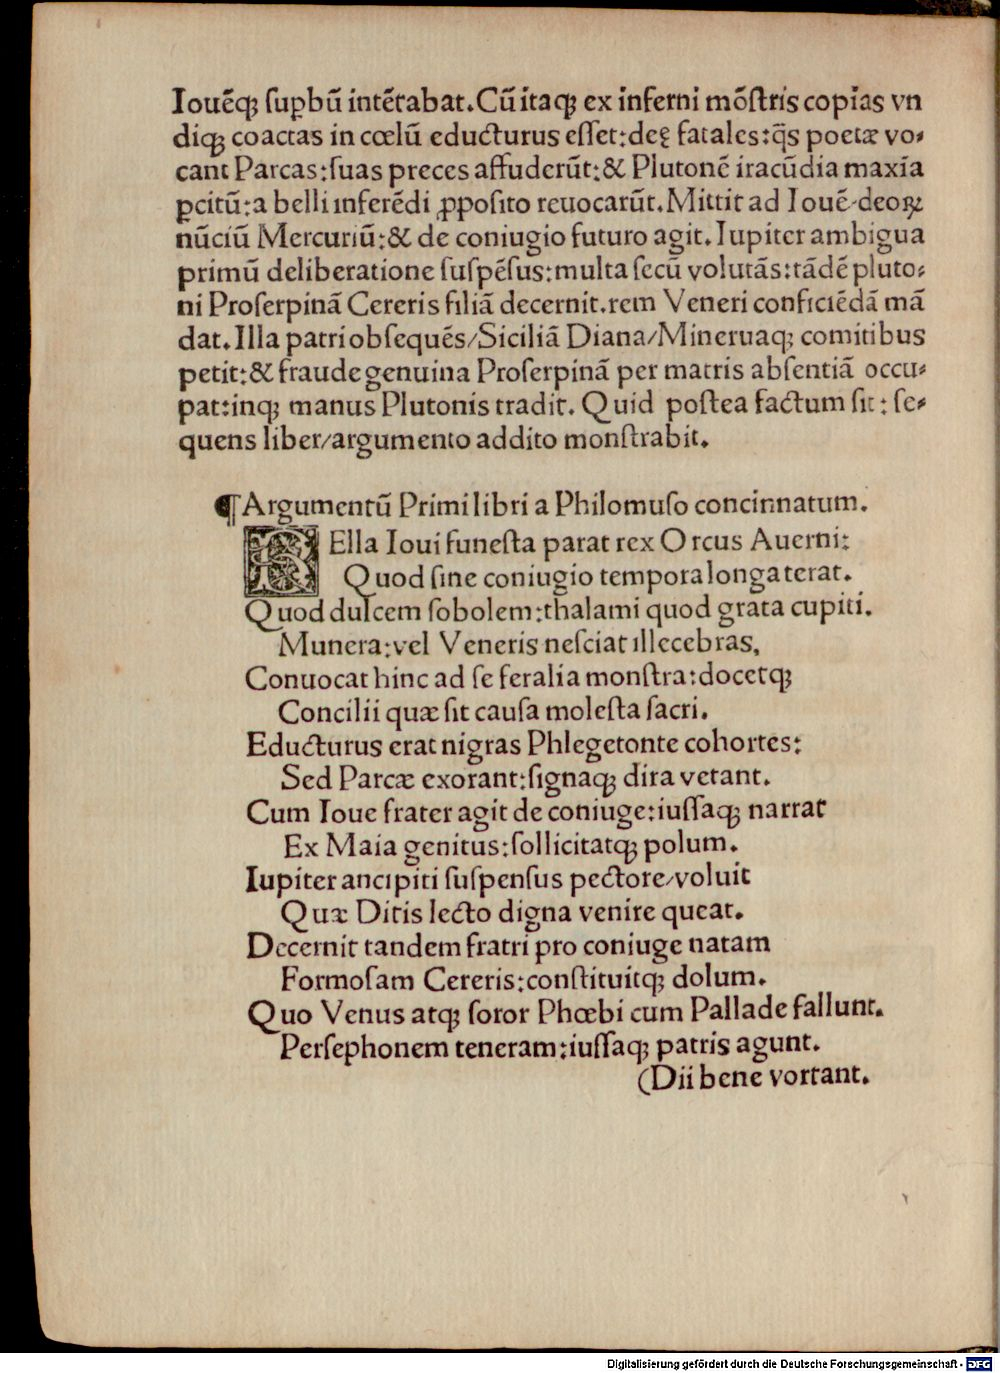 Iouēq; suꝑbū intētabat. Cū itaq; ex inferni mōſtris copias vn
diq; coactas in cœlū educturus eſſet: deę fatales: q̄s poetæ vo-
cant Parcas: ſuas preces affuderūt: & Plutonē iracūdia maxīa
ꝑcitū: a belli inferēdi ꝓpoſito reuocarūt. Mittit ad Iouē deoꝝ
nūciū Mercuriū: & de coniugio futuro agit. Iupiter ambigua
primū deliberatione ſuſpēſus: multa ſecū volutās: tādē pluto-
ni Proſerpinā Cereris filiā decernit. rem Veneri conficiēdā mā
dat. Illa patri obſequēs/ Siciliā Diana/ Mineruaq; comitibus
petit: & fraude genuina Proſerpinā per matris abſentiā occu-
pat: inq; manus Plutonis tradit. Quid poſtea factum ſit: ſe-
quens liber/ argumento addito monſtrabit.
¶ Argumentū Primi libri a Philomuſo concinnatum.
BElla Ioui funeſta parat rex Orcus Auerni:
Quod ſine coniugio tempora longa terat.
Quod dulcem ſobolem: thalami quod grata cupiti.
Munera: vel Veneris neſciat illecebras,
Conuocat hinc ad ſe feralia monſtra: docetq;
Concilii quæ ſit cauſa moleſta ſacri.
Educturus erat nigras Phlegetonte cohortes:
Sed Parcæ exorant: ſignaq; dira vetant.
Cum Ioue frater agit de coniuge: iuſſaq; narrat
Ex Maia genitus: ſollicitatq; polum.
Iupiter ancipiti ſuſpenſus pectore/ voluit
Quæ Ditis lecto digna venire queat.
Decernit tandem fratri pro coniuge natam
Formoſam Cereris: conſtituitq; dolum.
Quo Venus atq; ſoror Phœbi cum Pallade fallunt.
Perſephonem teneram: iuſſaq; patris agunt.
(Dii bene vortant.
Digitalisierung gefördert durch die Deutsche Forschungsgemeinschaft - DFG